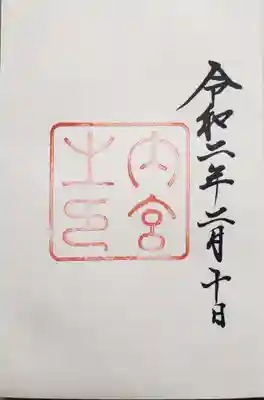 令和二年二月十日
内宮
之印